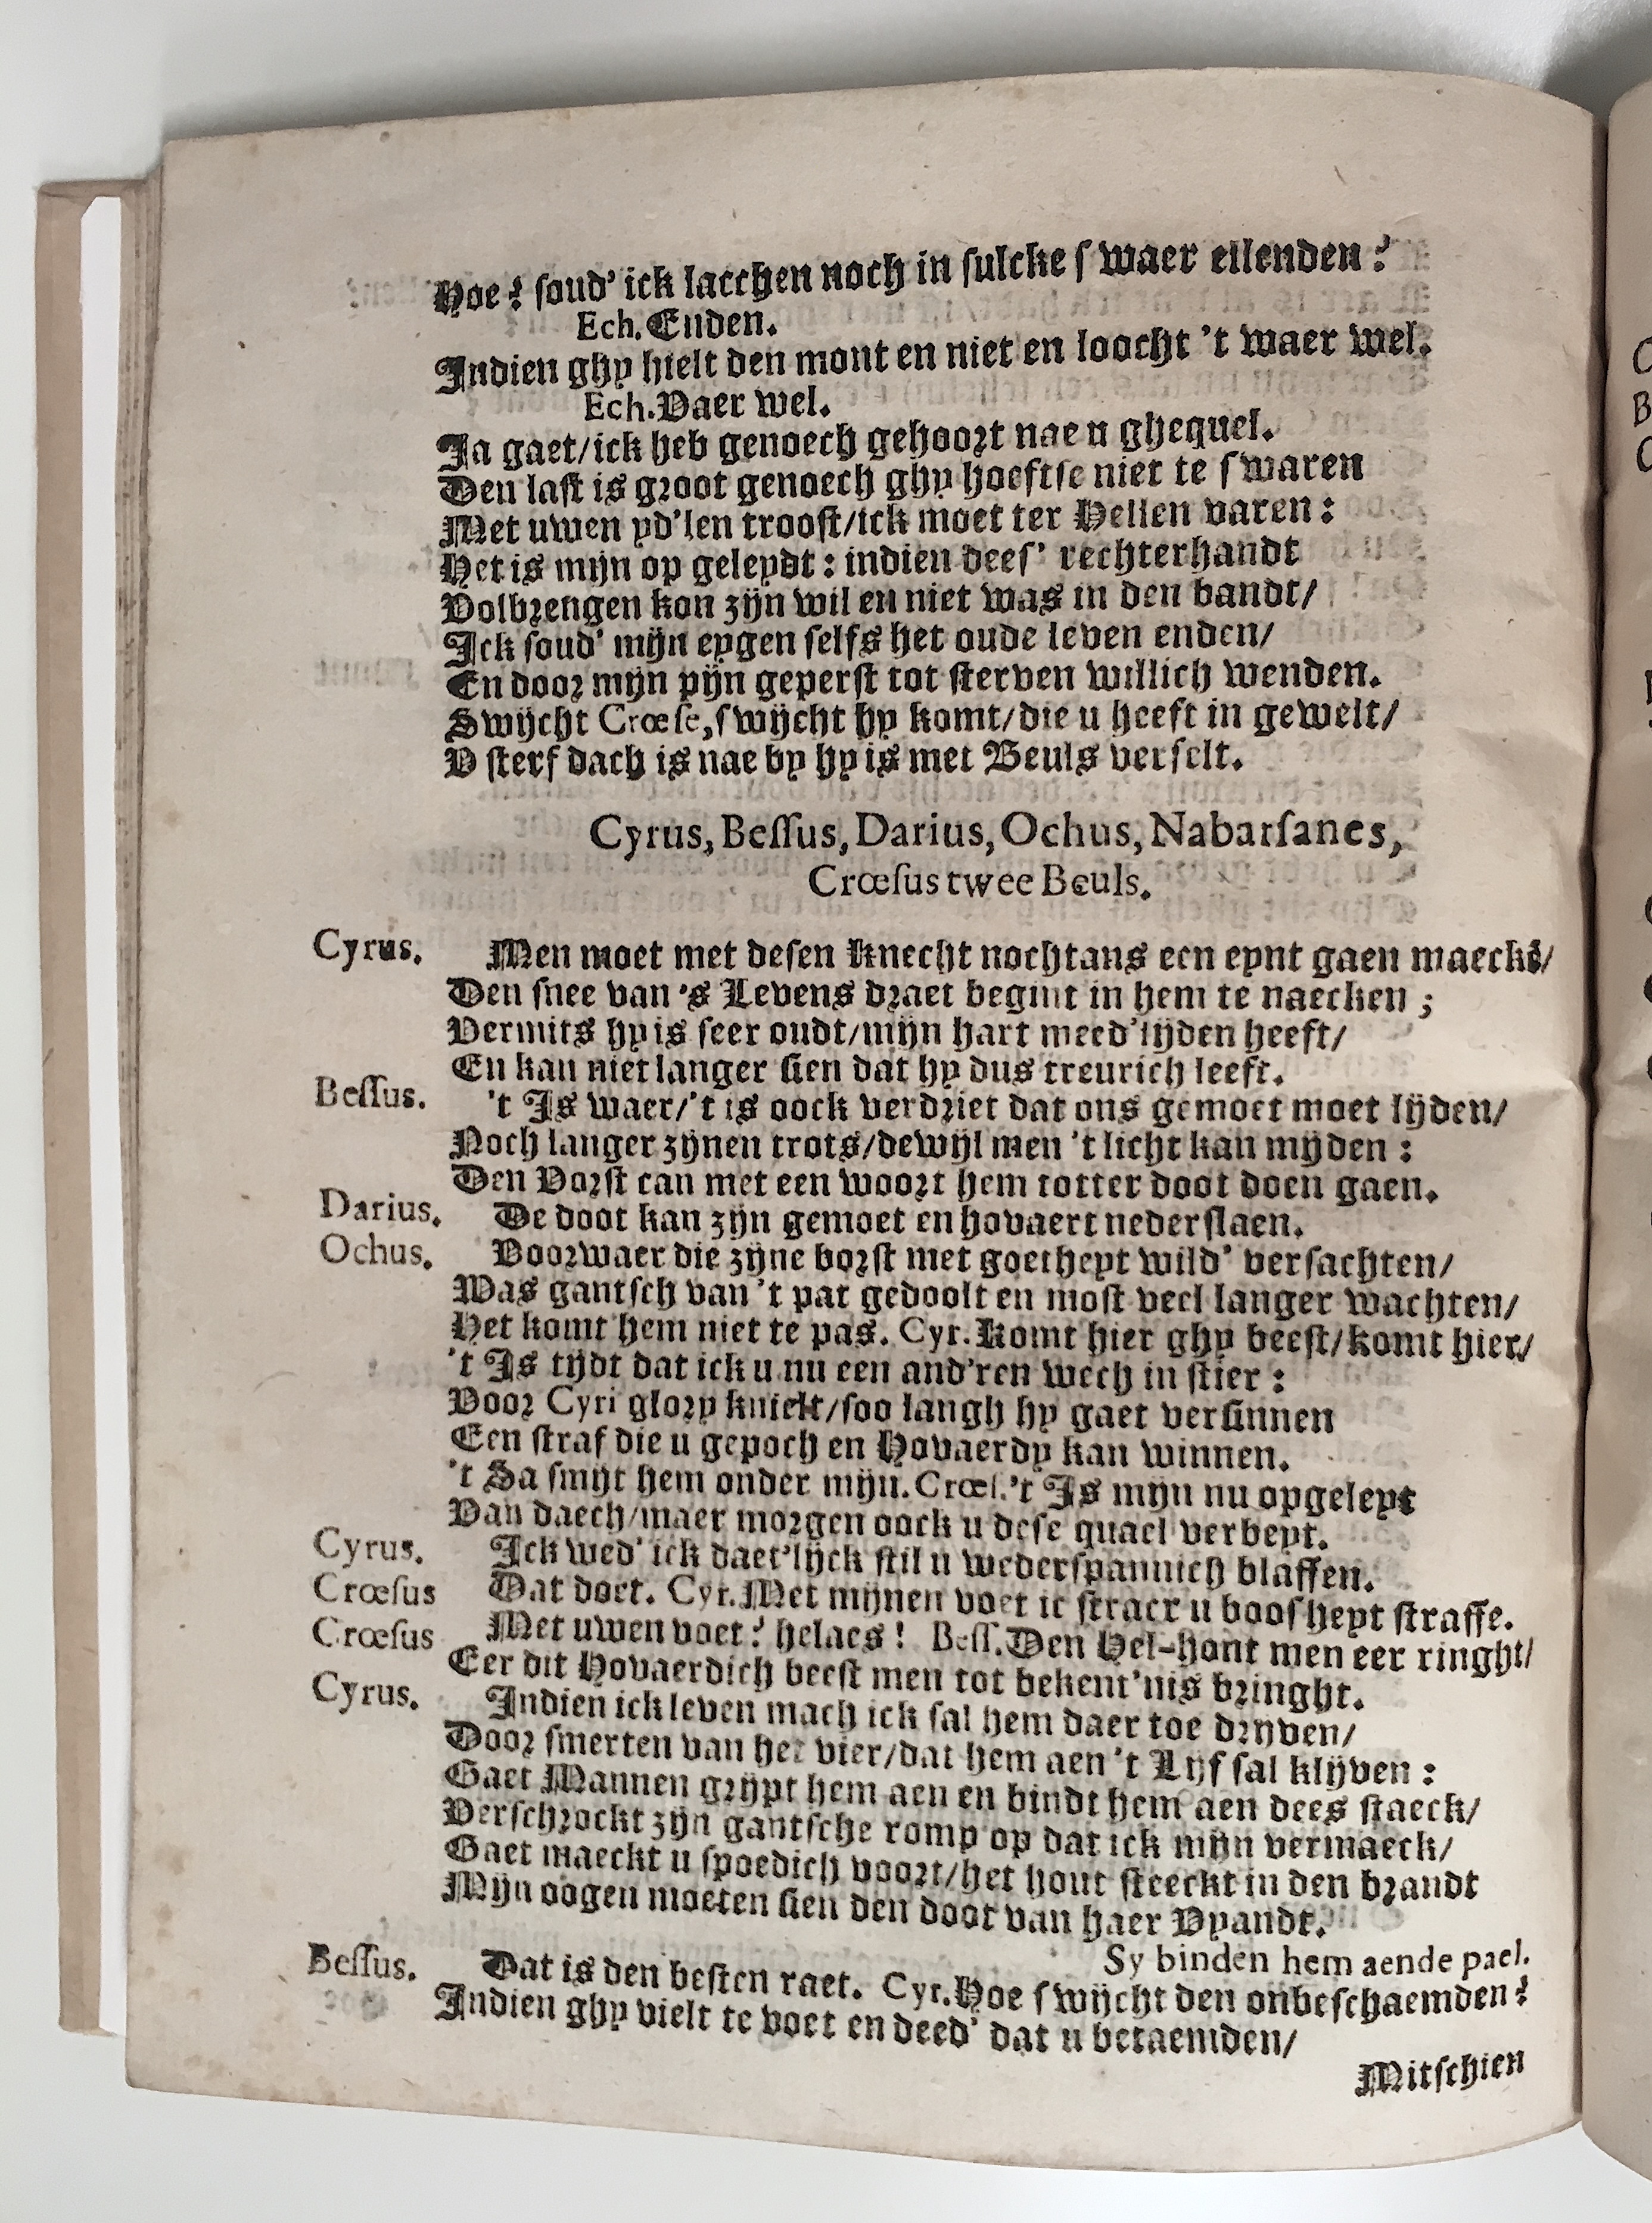 Hoe? soud' ick lacchen noch in sulcke swaer ellenden?
Ech. Enden.
Indien ghy hielt den mont en niet en loocht 't waer wel.
Ech. Vaer wel.
Ja gaet/ick heb genoech gehoort nae u ghequel.
Den last is groot genoech ghy hoeftse niet te swaren
Met uwen yd'len troost/ick moet ter Hellen varen:
Het is mijn op geleydt: indien dees' rechterhandt
Volbrengen kon zijn wil en niet was in den bandt/
Ick soud' mijn eygen selfs het oude leven enden/
En door mijn pijn geperst tot sterven willich wenden.
Swijcht Crœse, swijcht hy komt/die u heeft in gewelt/
V sterf dach is nae by hy is met Beuls verselt.
Cyrus, Bessus, Darius, Ochus, Nabarsanes,
Crœsus twee Beuls.
Cyrus. Men moet met desen Knecht nochtans een eynt gaen maeckē/
Den snee van 's Levens draet begint in hem te naecken;
Vermits hy is seer oudt/mijn hart meed'lijden heeft/
En kan niet langer sien dat hy dus treurich leeft.
Bessus. 't Is waer/'t is oock verdriet dat ons gemoet moet lijden/
Noch langer zijnen trots/dewijl men 't licht kan mijden:
Den Vorst can met een woort hem totter doot doen gaen.
Darius. De doot kan zijn gemoet en hovaert nederslaen.
Ochus. Voorwaer die zijne borst met goetheyt wild' versachten/
Was gantsch van 't pat gedoolt en most veel langer wachten/
Het komt hem niet te pas. Cyr. Komt hier ghy beest/komt hier/
't Is tijdt dat ick u nu een and'ren wech in stier:
Voor Cyri glory knielt/soo langh hy gaet versinnen
Een straf die u gepoch en Hovaerdy kan winnen.
't Sa smijt hem onder mijn. Crœs. 't Is mijn nu opgeleyt
Van daech/maer morgen oock u dese quael verbeyt.
Cyrus. Ick wed' ick daet'lijck stil u wederspannich blaffen.
Crœsus Dat doet. Cyr. Met mijnen voet ic stracx u boosheyt straffe.
Crœsus Met uwen voet? helaes! Bess. Den Hel-hont men eer ringht/
Eer dit Hovaerdich beest men tot bekent'nis bringht.
Cyrus. Indien ick leven mach ick sal hem daer toe drijven/
Door smerten van het vier/dat hem aen 't Lijf sal klijven:
Gaet Mannen grijpt hem aen en bindt hem aen dees staeck/
Verschrockt zijn gantsche romp op dat ick mijn vermaeck/
Gaet maeckt u spoedich voort/het hout steeckt in den brandt
Mijn oogen moeten sien den doot van haer Vyandt.
Sy binden hem aende pael.
Bessus. Dat is den besten raet. Cyr. Hoe swijcht den onbeschaemden?
Indien ghy vielt te voet en deed' dat u betaemden/
Mitschien